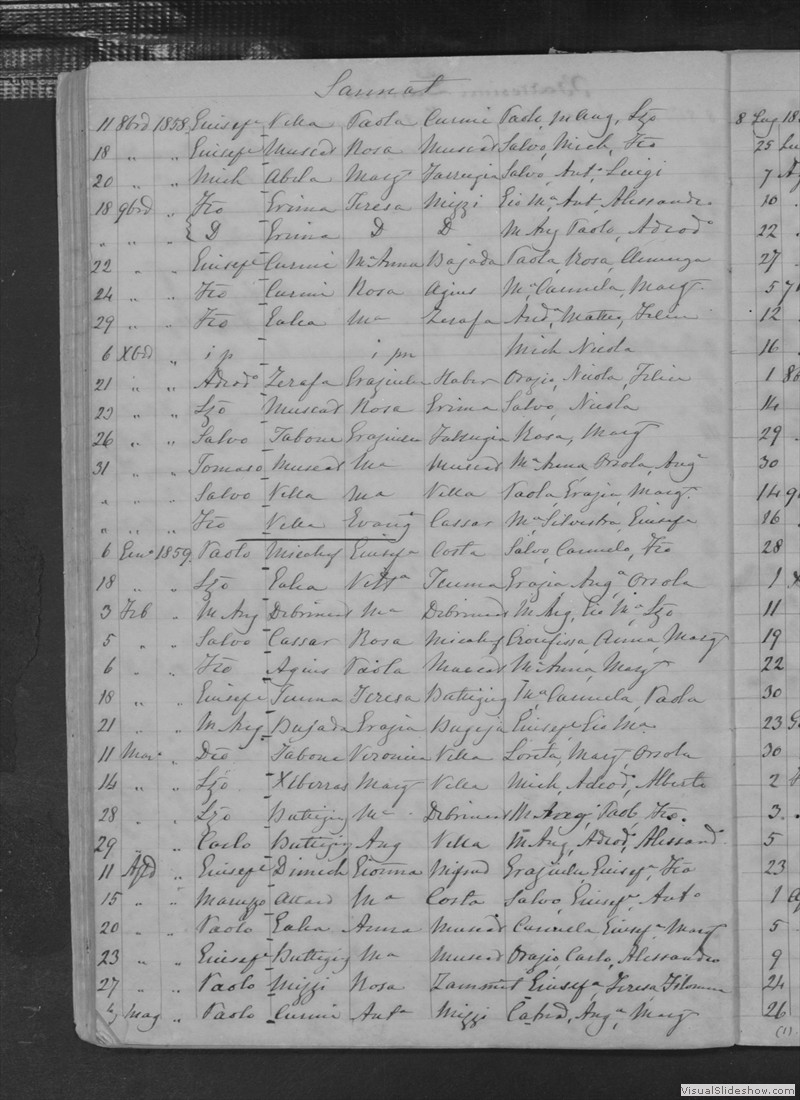 Sannat
11 8brd 1858 Giusepe Vella Paola Curmi Paolo, M Ang, Lzo
18 „ „ Giusepe Muscat Rosa Muscat Salvo, Mich, Fco
20 „ „ Mich Abela Marg Farrugia Salvo, Ant, Luigi
18 9brd „ Fco Grima Teresa Mizzi Gio Ma, Ant, Alessandro
„ „ „ { D Grima D D M Ang Paolo, Adeod
22 „ „ Giusepe Curmi Ma Anna Bajada Paola, Rosa,
24 „ „ Fco Curmi Rosa Agius Ma Carmela, Marg
29 „ „ Fco Galea Ma Zerafa And, Matteo, Felice
6 Xbrd „ i p i pn Mich Nicola
21 „ „ Adeod Zerafa Graziulla Orazio, Nicola, Felice
23 „ „ Lzo Muscat Rosa Grima Salvo, Nicola
26 „ „ Salvo Tabone Farrugia Rosa, Marg
31 „ „ Tomaso Muscat Ma Muscat Ma Anna Orsola, Ang
„ „ „ Salvo Vella Ma Vella Paola Grazia, Marg
„ „ „ Fco Vella Evang Cassar Ma Silvestra, Giusepa
6 Gen 1859 Paolo Micalef Giusepa Costa Salvo, Carmelo, Fco
18 „ „ Lzo Galea Teuma Grazia Ang Orsola
3 Feb „ M Ang Debrincat Ma Debrincat M Ang, Gio Ma, Lzo
5 „ „ Salvo Cassar Rosa Micalef Crocifissa, Anna, Marg
6 „ „ Fco Agius Paola Muscat Ma Anna, Marg
18 „ „ Giusepe Teuma Teresa Buttigieg Carmela, Paola
21 „ „ M Ang Bajada Grazia Bugeja Giusepe Gio Ma
11 Mar „ Deo Tabone Veronica Vella Loreta, Marg, Orsola
14 „ „ Lzo Xiberras Marg Vella Mich, Adeod, Alberto
28 „ „ Lzo Buttigieg Ma Debrincat M Ang Paolo, Fco
29 „ „ Carlo Buttigieg Ang Vella M Ang, Adeod, Alessand
11 Apld „ Giusepe Dimech Gionna Mifsud Graziulla, Giusepa, Fco
15 „ „ Maruzzo Attard Ma Costa Salvo, Giusepa, Anto
20 „ „ Paolo Galea Anna Muscat Carmela, Giusepa Marg
23 „ „ Giusepe Buttigieg Ma Muscat Orazio, Carlo, Alessandro
27 „ „ Paolo Mizzi Rosa Zammit Giusepa, Teresa Filomena
4 Mag „ Paolo Curmi Anta Mizzi Ang, Marg
8 Lug 18
25
7
10
22
27
5
12
16
1
14
29
30
14
16
28
1
11
19
22
30
23
30
2
3
5
23
1
5
9
24
26
VisualSlideshow.com